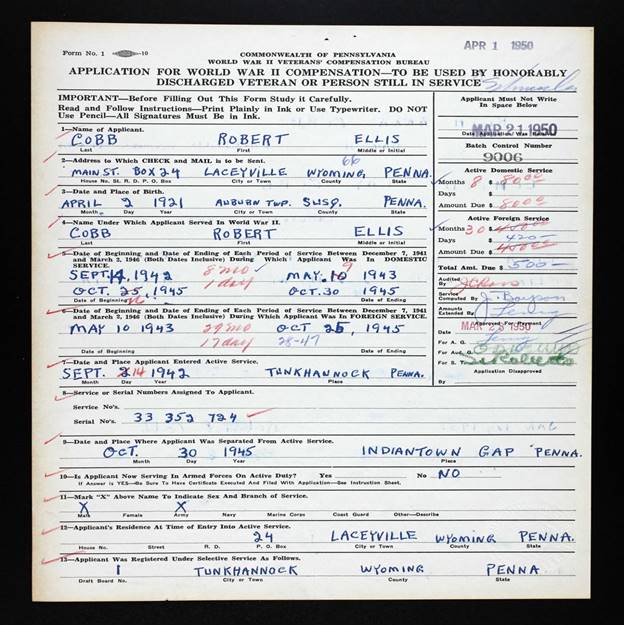 APR 1 1950
Form No. 1 -10
COMMONWEALTH OF PENNSYLVANIA
WORLD WAR II VETERANS' COMPENSATION BUREAU
APPLICATION FOR WORLD WAR II COMPENSATION—TO BE USED BY HONORABLY
DISCHARGED VETERAN OR PERSON STILL IN SERVICE
IMPORTANT—Before Filling Out This Form Study it Carefully.
Read and Follow Instructions—Print Plainly in Ink or Use Typewriter. DO NOT
Use Pencil—All Signatures Must be in Ink.
Applicant Must Not Write
In Space Below
MAR 21 1950
Batch Control Number
9006
1—Name of Applicant.
COBB ROBERT ELLIS
Last First Middle or Initial
2—Address to Which CHECK and MAIL is to be Sent.
66
MAIN ST. BOX 24 LACEYVILLE WYOMING, PENNA.
House No. St. R. D. P. O. Box City or Town County State
3—Date and Place of Birth.
APRIL 2 1921 AUBURN TWP. SUSQ. PENNA.
Month Day Year City or Town County State
4—Name Under Which Applicant Served In World War II.
COBB ROBERT ELLIS
Last First Middle or Initial
5—Date of Beginning and Date of Ending of Each Period of Service Between December 7, 1941
and March 2, 1946 (Both Dates Inclusive) During Which Applicant Was in DOMESTIC
SERVICE.
SEPT. 14, 1942 8 mo MAY. 10 9 1943
OCT. 25, 1945 1 day OCT. 30 1945
Date of Beginning Date of Ending
6—Date of Beginning and Date of Ending of Each Period of Service Between December 7, 1941
and March 2, 1946 (Both Dates Inclusive) During Which Applicant Was in FOREIGN SERVICE.
MAY 10 1943 29 mo OCT 25, 1945
17 day 28-47
Date of Beginning Date of Ending
7—Date and Place Applicant Entered Active Service.
SEPT. 14 1942 TUNKHANNOCK PENNA.
Month Day Year Place
8—Service or Serial Numbers Assigned To Applicant.
Service No's.
Serial No's. 33 352 724
9—Date and Place Where Applicant Was Separated From Active Service.
OCT. 30 1945 INDIANTOWN GAP PENNA.
Month Day Year Place
10—Is Applicant Now Serving In Armed Forces On Active Duty? Yes No NO
If Answer is YES—Be Sure To Have Certificate Executed And Filed With Application—See Instruction Sheet.
11—Mark "X" Above Name To Indicate Sex And Branch of Service.
X X
Male Female Army Navy Marine Corps Coast Guard Other—Describe
12—Applicant's Residence At Time of Entry Into Active Service.
24 LACEYVILLE WYOMING PENNA.
House No. Street R. D. P. O. Box City or Town County State
13—Applicant Was Registered Under Selective Service As Follows.
1 TUNKHANNOCK WYOMING PENNA
Draft Board No. City or Town County State
Active Domestic Service
Months 8 $ 80.00
Days $
Amount Due $ 80.00
Active Foreign Service
Months 30 $ 450.00
Days $ 420-
Amount Due $ 450.00
Total Amt. Due $ 500-
Audited
By
Service
Computed By
Amounts
Extended By
Approved For Payment
MAR 23 1950
For A. G.
For Aud. G.
For S. T.
Application Disapproved
By